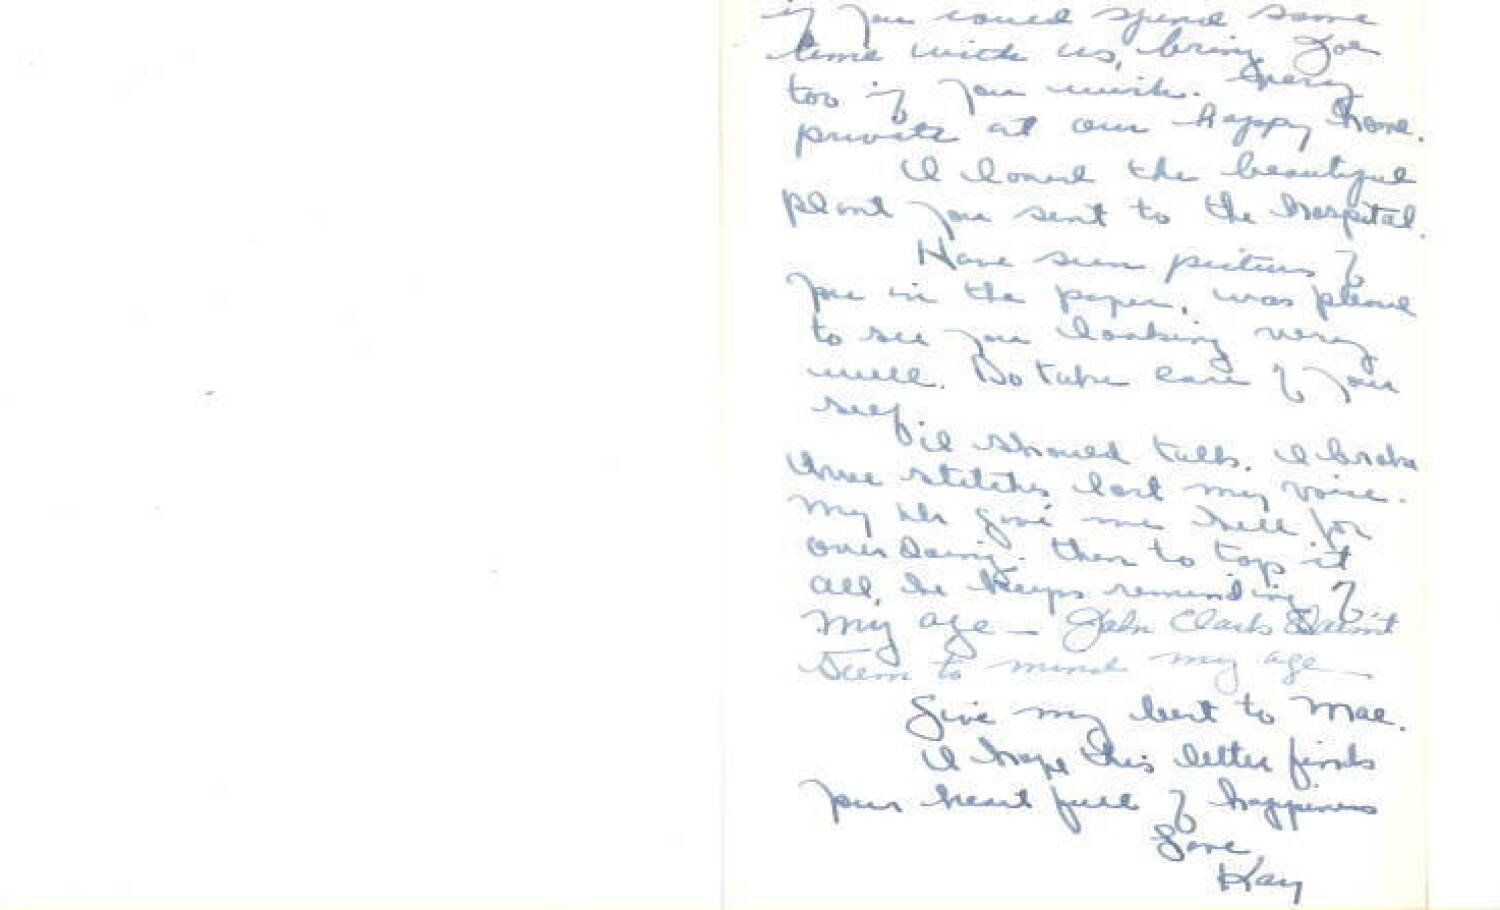 if you could spend some
time with us, bring Joe
too if you wish. Very
private at our happy home.
I loved the beautiful
plant you sent to the hospital.
Have seen pictures of
you in the paper, was pleased
to see you looking very
well. Do take care of your
self
I should talk. I broke
three stitches lost my voice.
My Dr give me hell for
over doing. then to top it
all, he keeps reminding of
my age — John Clark
seem to mind my age —
Give my best to Mae.
I hope this letter finds
your heart full of happiness
Love
Kay